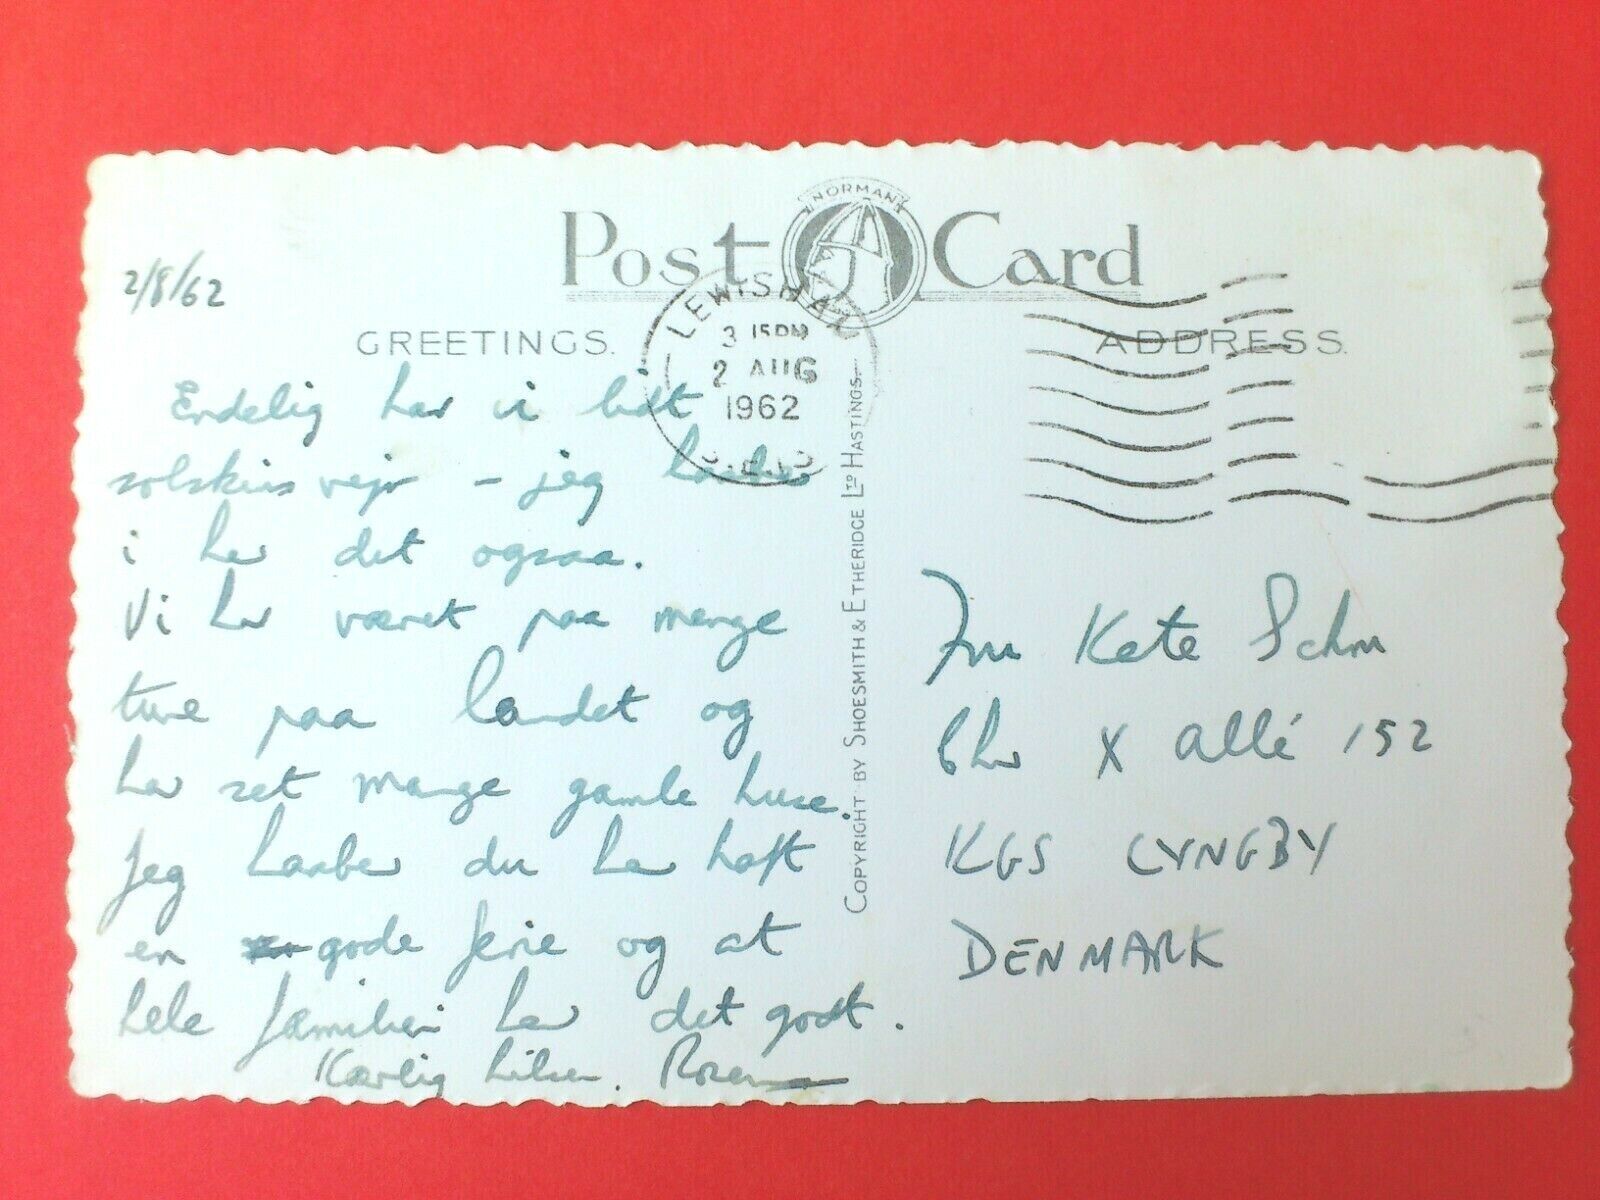 NORMAN
Post Card
2/8/62
GREETINGS.
ADDRESS.
LEWISHAM
3 15 PM
2 AUG
1962
S.E.13
Endelig har vi lidt
solskins vejr - jeg haaber
i har det ogsaa.
Vi har været paa mange
ture paa landet og
har set mange gamle huse.
Jeg haaber du har haft
en gode ferie og at
hele familien har det godt.
Kærlig hilsen.
COPYRIGHT BY SHOESMITH & ETHERIDGE LTD HASTINGS.
Fru Kate
Chr X allé 152
KGS LYNGBY
DENMARK